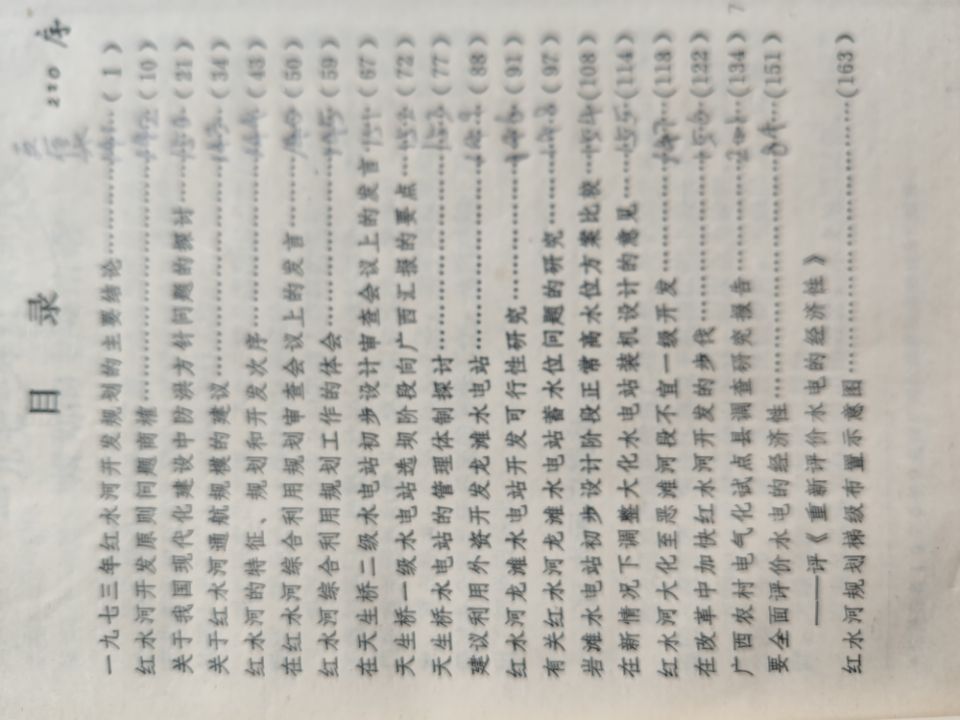 目 录
一九七三年红水河开发规划的主要结论…………(1)
红水河开发原则问题商榷…………(10)
关于我国现代化建设中防洪方针问题的探讨…………(21)
关于红水河通航规模的建议…………(34)
红水河的特征、规划和开发次序…………(43)
在红水河综合利用规划审查会议上的发言…………(50)
红水河综合利用规划工作的体会…………(59)
在天生桥二级水电站初步设计审查会议上的发言…………(67)
天生桥一级水电站选坝阶段向广西汇报的要点…………(72)
天生桥水电站的管理体制探讨…………(77)
建议利用外资开发龙滩水电站…………(88)
红水河龙滩水电站开发可行性研究…………(91)
有关红水河龙滩水电站蓄水位问题的研究…………(97)
岩滩水电站初步设计阶段正常高水位方案比较…………(108)
在新情况下调整大化水电站装机设计的意见…………(114)
红水河大化至恶滩河段不宜一级开发…………(118)
在改革中加快红水河开发的步伐…………(122)
广西农村电气化试点县调查研究报告…………(134)
要全面评价水电的经济性…………(151)
——评《重新评价水电的经济性》
红水河规划梯级布置示意图…………(163)
序